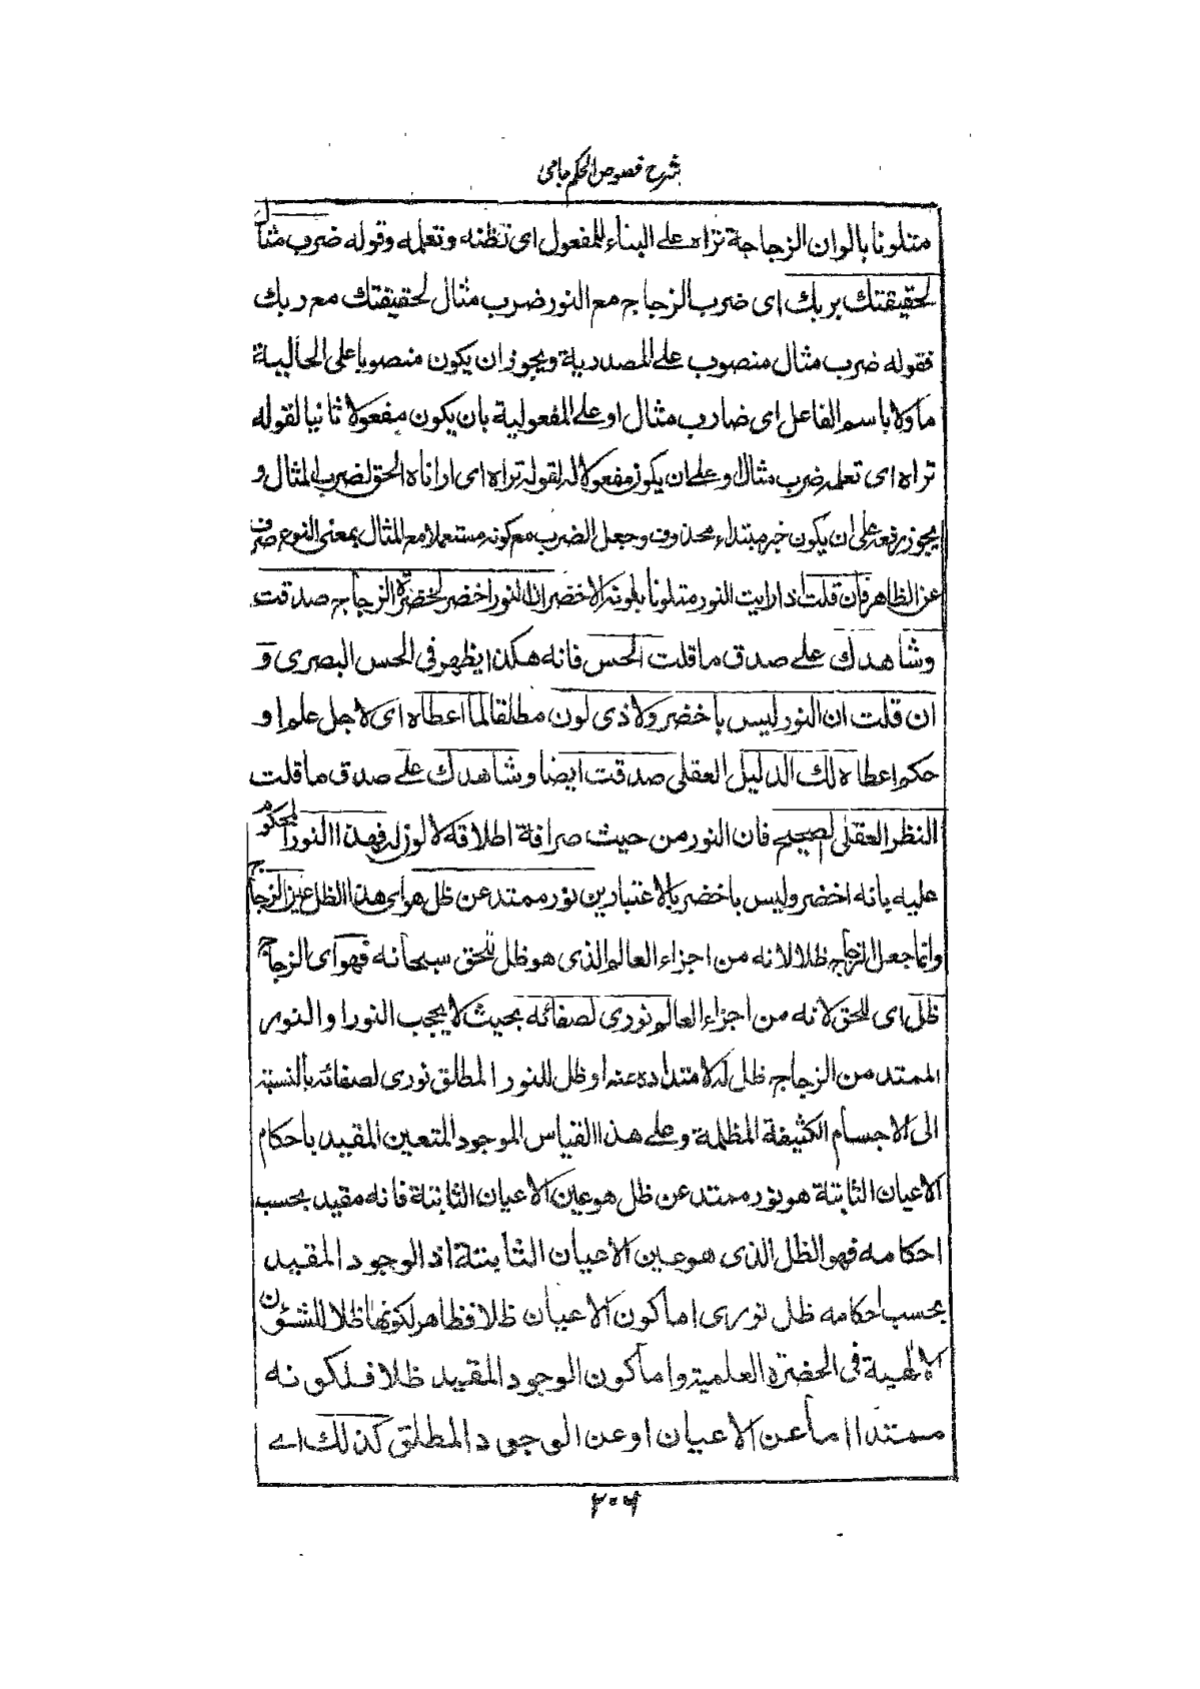 شرح فصوص الحكم جامى
متلونا بالوان الزجاجة تراه على البناء للمفعول اى تظنه وتعلمه وقوله ضرب مثال
لحقيقتك بربك اى ضرب الزجاج مع النور ضرب مثال لحقيقتك مع ربك
فقوله ضرب مثال منصوب على المصدرية ويجوز ان يكون منصوبا على الحالية
ماولا باسم الفاعل اى ضارب مثال او على المفعولية بان يكون مفعولا ثانيا لقوله
تراه اى تعلمه ضرب مثال او على ان يكون مفعولا له لقوله تراه اى اراناه الحق لضرب المثال و
يجوز رفعه على ان يكون خبر مبتداء محذوف وجعل الضرب مع كونه مستعملا مع المثال بمعنى النوع صرف
عن الظاهر فان قلت اذا رايت النور متلونا بلونه الاخضر ان النور اخضر لخضرة الزجاج صدقت
وشاهدك على صدق ما قلت الحس فانه هكذا يظهر فى الحس البصرى و
ان قلت ان النور ليس باخضر ولا ذى لون مطلقا لما اعطاه اى لاجل علم او
حكم اعطاه لك الدليل العقلى صدقت ايضا وشاهدك على صدق ما قلت
النظر العقلى الصحيح فان النور من حيث صرافة اطلاقه لا لون له فهذا النور المحكوم
عليه بانه اخضر وليس باخضر بالاعتبارين نور ممتد عن ظل هو اى هذا الظل عين الزجاج
وانما جعل الزجاج ظلا لانه من اجزاء العالم الذى هو ظل للحق سبحانه فهو اى الزجاج
ظل اى للحق لانه من اجزاء العالم نورى لصفائه بحيث لا يحجب النور او النور
الممتد من الزجاج ظل له لامتداده عنه او ظل للنور المطلق نورى لصفائه بالنسبة
الى الاجسام الكثيفة المظلمة وعلى هذا القياس الموجود المتعين المقيد باحكام
الاعيان الثابتة هو نور ممتد عن ظل هو عين الاعيان الثابتة فانه مقيد بحسب
احكامه فهو الظل الذى هو عين الاعيان الثابتة اذ الوجود المقيد
بحسب احكامه ظل نورى اما كون الاعيان ظلا فظاهر لكونها ظلا للشئون
الالهية فى الحضرة العلمية واما كون الوجود المقيد ظلا فلكونه
ممتدا اما عن الاعيان او عن الوجود المطلق كذلك اے
۲۰۶